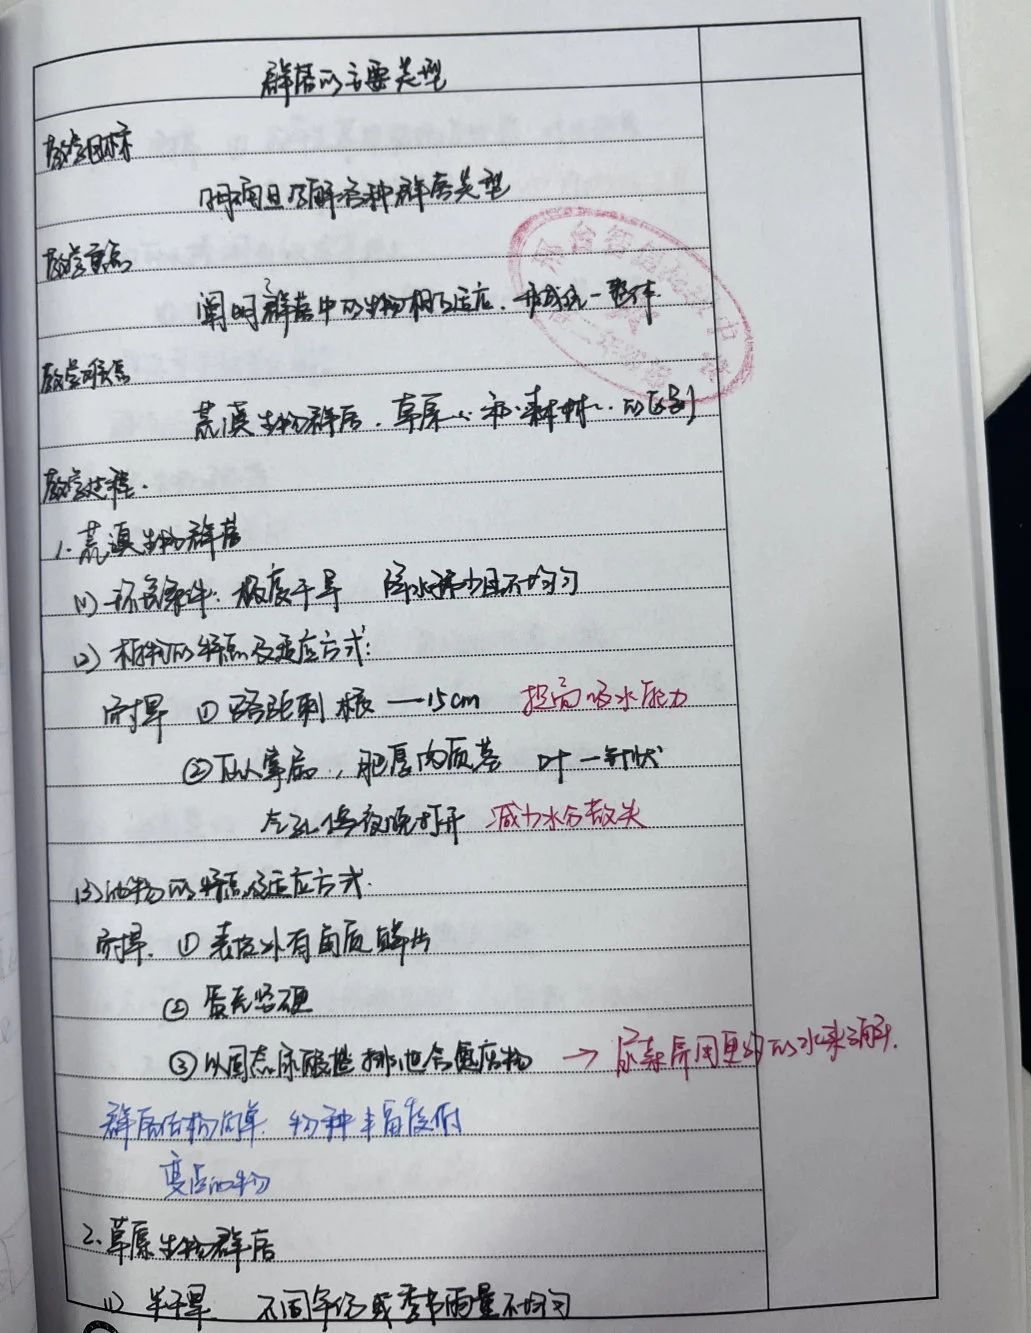 群落的主要类型
教学目标
阐明且了解各种群落类型
教学重点
阐明群落中的生物相互适应、形成统一整体
教学难点
荒漠生物群落、草原~和森林~的区别
教学过程.
1.荒漠生物群落
(1)环境条件:极度干旱 降水稀少且不均匀
(2)植物的特点及适应方式:
耐旱 ①骆驼刺 根—15cm 提高吸水能力
②仙人掌属, 肥厚肉质茎 叶—针状
气孔 夜晚打开 减少水分散失
(3)动物的特点及适应方式.
耐旱. ①表皮外有角质鳞片
②蛋壳坚硬
③以固态尿酸盐排泄含氮废物 → 尿素需用更多的水来溶解.
群落结构简单, 物种丰富度低
变温动物
2.草原生物群落
(1)半干旱 不同年份或季节雨量不均匀